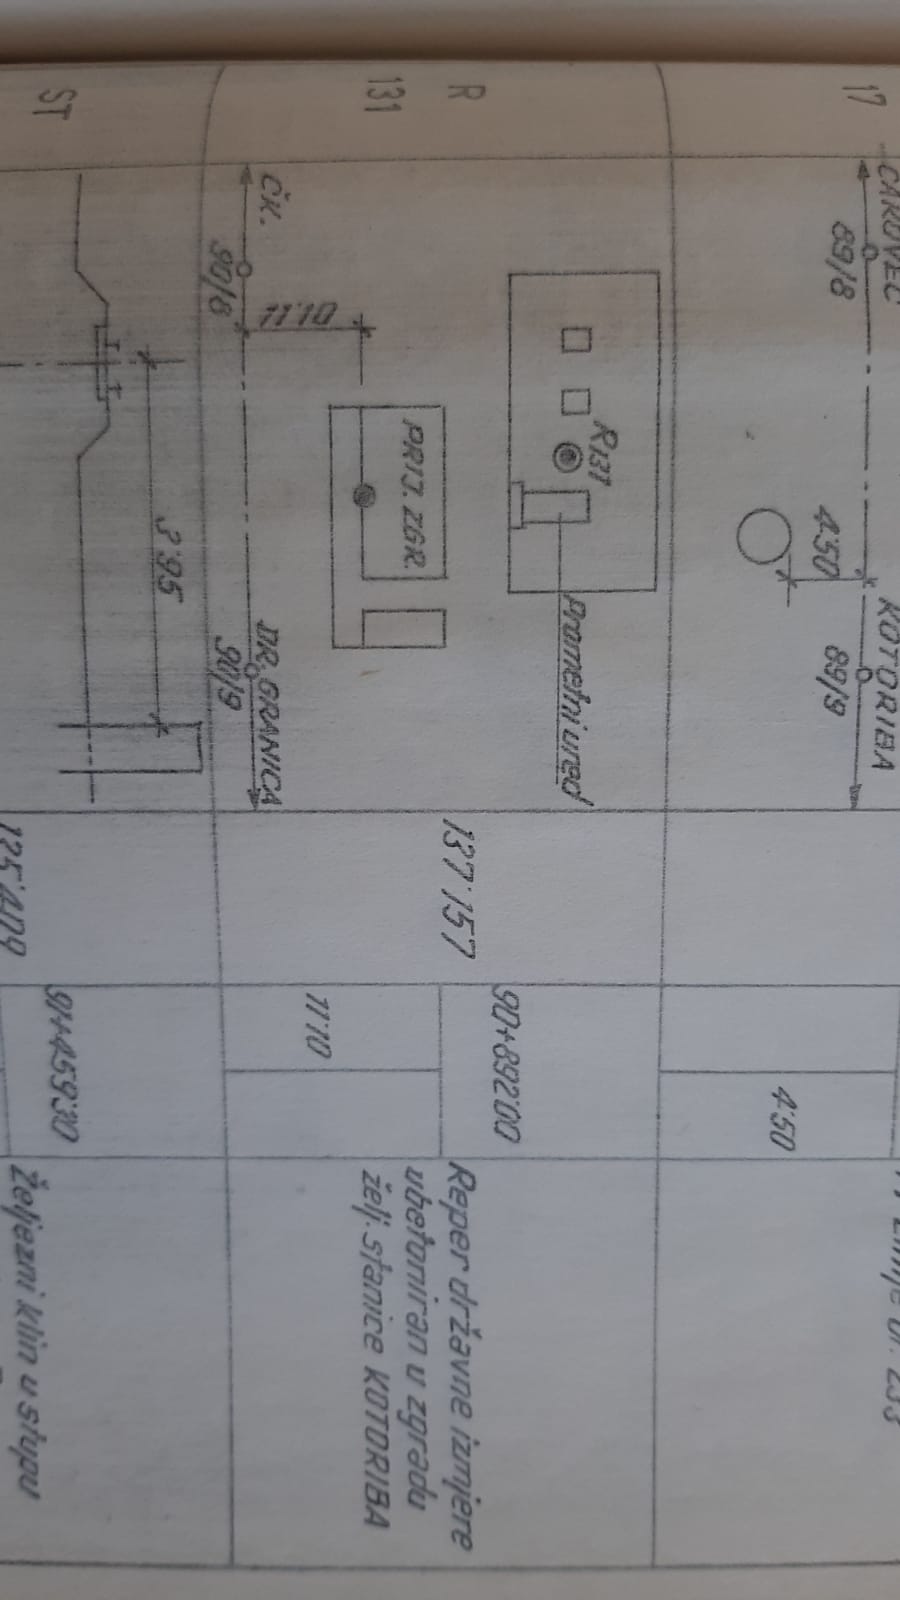 17
ČAKOVEC
KOTORIBA
89/8
89/9
4'50
4'50
br. 233
R
131
R131
Prometni ured
PRIJ. ZGR.
11'10
ČK.
DR. GRANICA
90/8
90/9
137'157
90+892'00
11'10
Reper državne izmjere
ubetoniran u zgradu
želj. stanice KOTORIBA
ST
3'95
135'409
91+459'30
Željezni klin u stupu